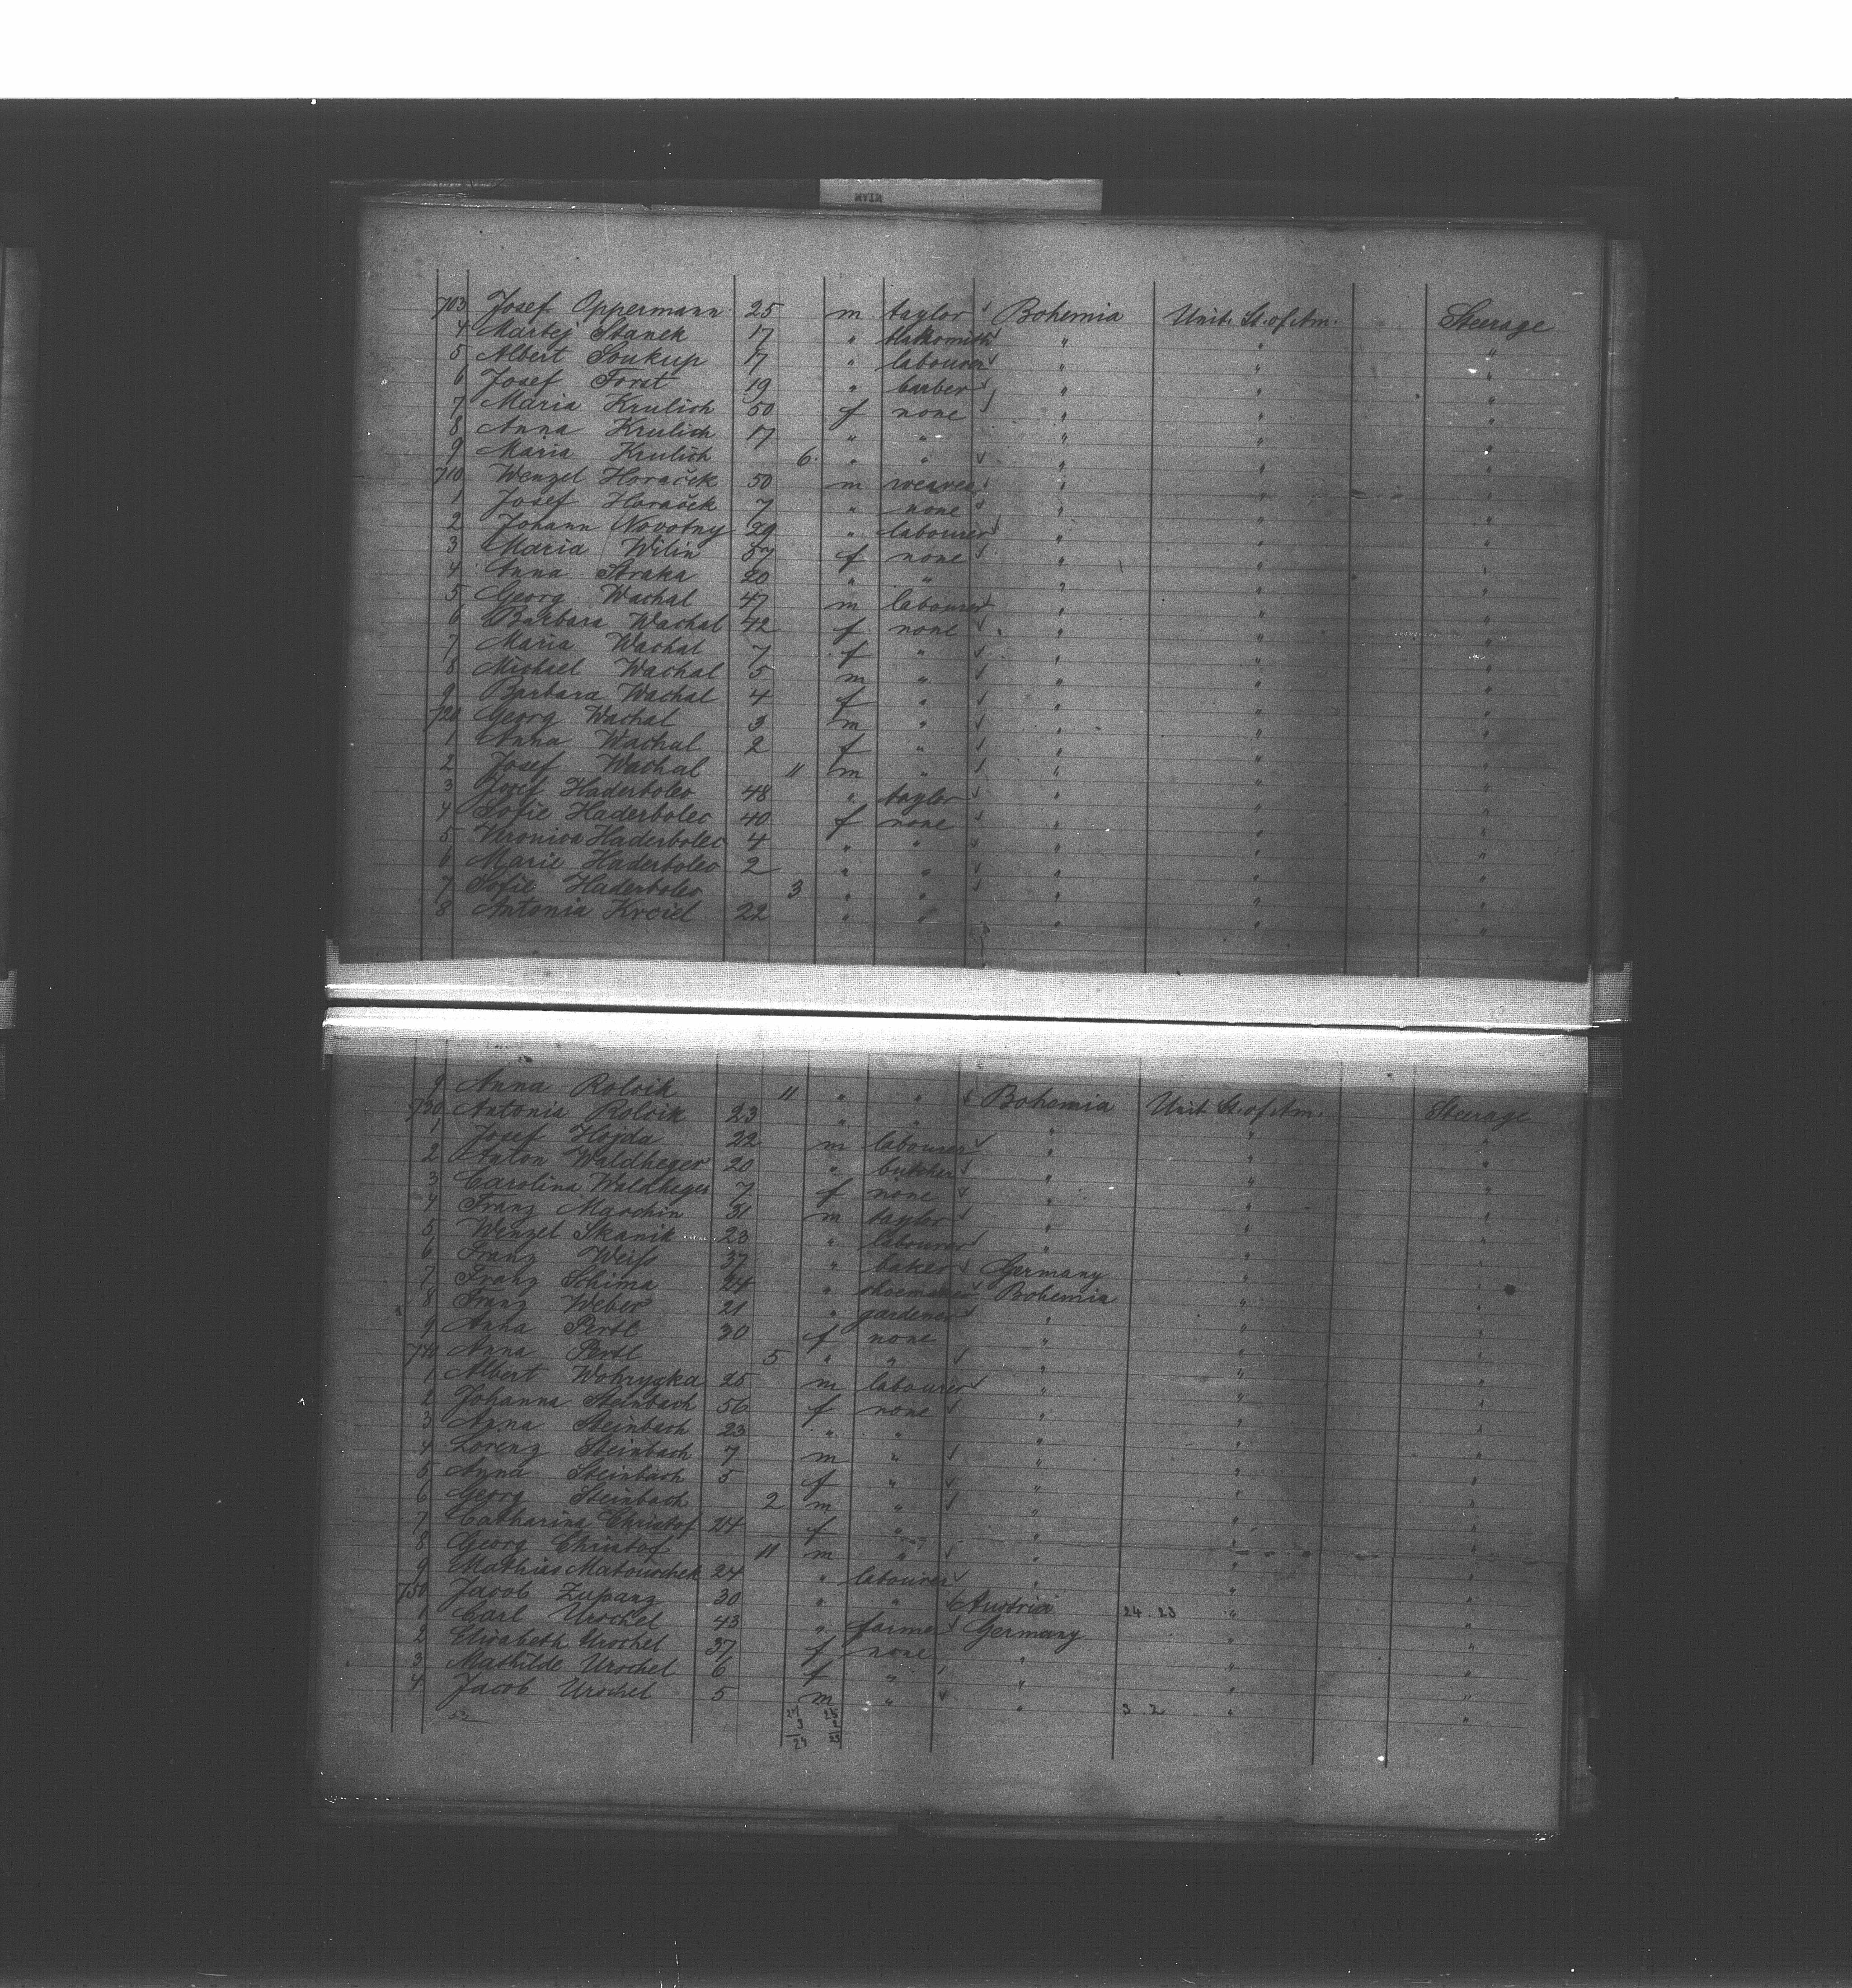 703 Josef Oppermann 25 m taylor ✓ Bohemia Unit. St. of Am. Steerage
4 Martej Stanek 17 " blaksmith ✓ " " "
5 Albert Soukup 17 " labourer ✓ " " "
6 Josef Forst 19 " barber ✓ " " "
7 Maria Krulich 50 f none ✓ " " "
8 Anna Krulich 17 " " " " "
9 Maria Krulich 6 " " ✓ " " "
710 Wenzel Horaček 50 m weaver ✓ " " "
1 Josef Horaček 7 " none ✓ " " "
2 Johann Novotny 29 " labourer ✓ " " "
3 Maria Wilin f none ✓ " " "
4 Anna Straka 20 " " " " "
5 Georg Wachal 47 m labourer ✓ " " "
6 Barbara Wachal 42 f none ✓ " " "
7 Maria Wachal 7 f " ✓ " " "
8 Michael Wachal 5 m " ✓ " " "
9 Barbara Wachal 4 f " ✓ " " "
720 Georg Wachal 3 m " ✓ " " "
1 Anna Wachal 2 f " ✓ " " "
2 Josef Wachal 11 m " ✓ " " "
3 Josef Haderbolec 48 " taylor ✓ " " "
4 Sofie Haderbolec 40 f none ✓ " " "
5 Veronica Haderbolec 4 " " " " " "
6 Marie Haderbolec 2 " " ✓ " " "
7 Sofie Haderbolec 3 " " ✓ " " "
8 Antonia Krciel 22 " " " " "
9 Anna Rolcik 11 " " ✓ Bohemia Unit. St. of Am. Steerage
730 Antonia Rolcik 23 " " " " "
1 Josef Hojda 22 m labourer ✓ " " "
2 Anton Waldheger 20 " butcher ✓ " " "
3 Carolina Waldheger 7 f none ✓ " " "
4 Franz Marchin 31 m taylor ✓ " " "
5 Wenzel Skanik 23 " labourer ✓ " " "
6 Franz Weiſs 37 " baker ✓ Germany " "
7 Franz Schima 24 " shoemaker ✓ Bohemia " "
8 Franz Weber 21 " gardener ✓ " " "
9 Anna Pertl 30 f none " " "
740 Anna Pertl 5 " " ✓ " " "
1 Albert Wohryzka 25 m labourer ✓ " " "
2 Johanna Steinbach 56 f none ✓ " " "
3 Anna Steinbach 23 " " " " "
4 Lorenz Steinbach 7 m " ✓ " " "
5 Anna Steinbach 5 f " ✓ " " "
6 Georg Steinbach 2 m " ✓ " " "
7 Catharina Christof 24 f " " " "
8 Georg Christof 11 m " ✓ " " "
9 Mathias Matouschek 24 " labourer ✓ " " "
750 Jacob Zupanz 30 " " ✓ Austria 24.23 " "
1 Carl Urschel 43 " farmer ✓ Germany " "
2 Elisabeth Urschel 37 f none " " "
3 Mathilde Urschel 6 f " ✓ " " "
4 Jacob Urschel 5 m " ✓ " 3.2 " "